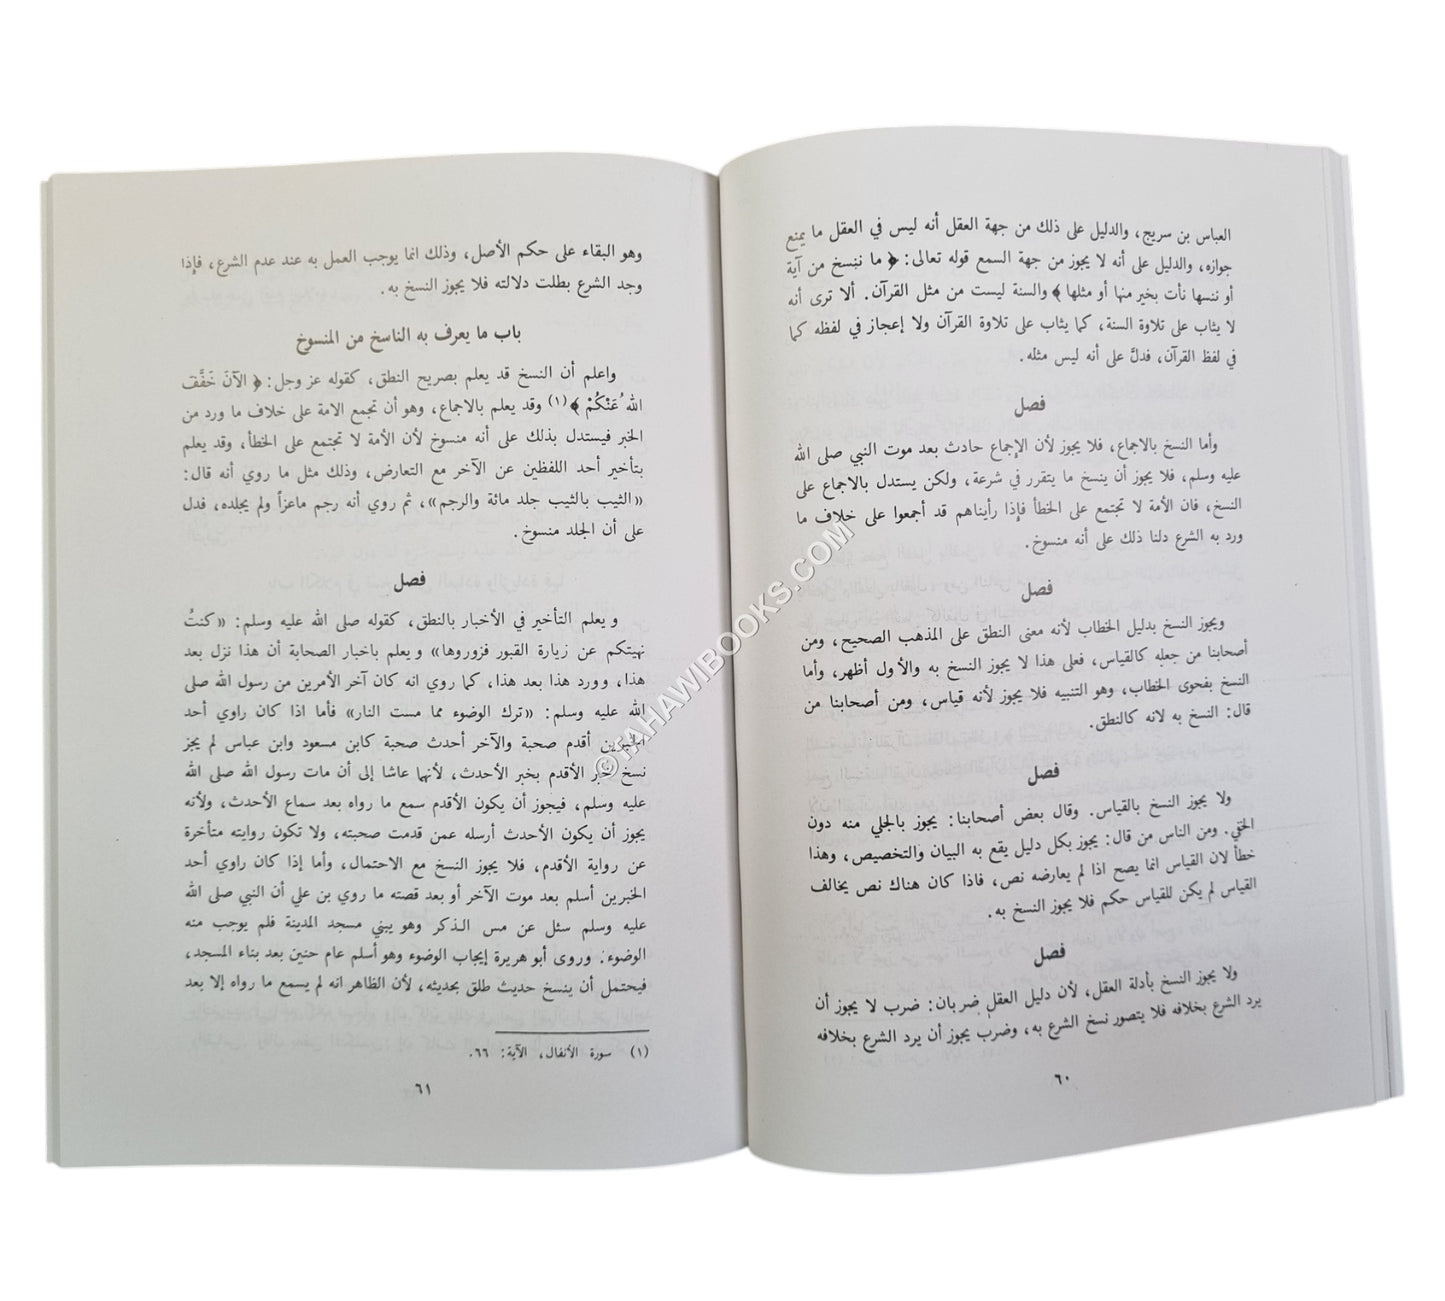 العباس بن سريج، والدليل على ذلك من جهة العقل أنه ليس في العقل ما يمنع
جوازه، والدليل على أنه لا يجوز من جهة السمع قوله تعالى: ﴿ ما ننسخ من آية
أو ننسها نأت بخير منها أو مثلها ﴾ والسنة ليست من مثل القرآن. ألا ترى أنه
لا يثاب على تلاوة السنة، كما يثاب على تلاوة القرآن ولا إعجاز في لفظه كما
في لفظ القرآن، فدلَّ على أنه ليس مثله.
فصل
وأما النسخ بالاجماع، فلا يجوز لأن الإجماع حادث بعد موت النبي صلى الله
عليه وسلم، فلا يجوز أن ينسخ ما يتقرر في شرعة، ولكن يستدل بالاجماع على
النسخ، فان الأمة لا تجتمع على الخطأ فإذا رأيناهم قد أجمعوا على خلاف ما
ورد به الشرع دلنا ذلك على أنه منسوخ.
فصل
ويجوز النسخ بدليل الخطاب لأنه معنى النطق على المذهب الصحيح، ومن
أصحابنا من جعله كالقياس، فعلى هذا لا يجوز النسخ به والأول أظهر، وأما
النسخ بفحوى الخطاب، وهو التنبيه فلا يجوز لأنه قياس، ومن أصحابنا من
قال: النسخ به لانه كالنطق.
فصل
ولا يجوز النسخ بالقياس. وقال بعض أصحابنا: يجوز بالجلي منه دون
الخفي. ومن الناس من قال: يجوز بكل دليل يقع به البيان والتخصيص، وهذا
خطأ لان القياس انما يصح اذا لم يعارضه نص، فاذا كان هناك نص يخالف
القياس لم يكن للقياس حكم فلا يجوز النسخ به.
فصل
ولا يجوز النسخ بأدلة العقل، لأن دليل العقل ضربان: ضرب لا يجوز أن
يرد الشرع بخلافه فلا يتصور نسخ الشرع به، وضرب يجوز أن يرد الشرع بخلافه
٦٠
وهو البقاء على حكم الأصل، وذلك انما يوجب العمل به عند عدم الشرع، فإذا
وجد الشرع بطلت دلالته فلا يجوز النسخ به.
باب ما يعرف به الناسخ من المنسوخ
واعلم أن النسخ قد يعلم بصريح النطق، كقوله عز وجل: ﴿ الآنَ خَفَّفَ
اللهُ عَنْكُمْ ﴾(١) وقد يعلم بالاجماع، وهو أن تجمع الامة على خلاف ما ورد من
الخبر فيستدل بذلك على أنه منسوخ لأن الأمة لا تجتمع على الخطأ، وقد يعلم
بتأخير أحد اللفظين عن الآخر مع التعارض، وذلك مثل ما روي أنه قال:
«الثيب بالثيب جلد مائة والرجم»، ثم روي أنه رجم ماعزاً ولم يجلده، فدل
على أن الجلد منسوخ.
فصل
ويعلم التأخير في الأخبار بالنطق، كقوله صلى الله عليه وسلم: «كنتُ
نهيتكم عن زيارة القبور فزوروها» ويعلم باخبار الصحابة أن هذا نزل بعد
هذا، وورد هذا بعد هذا، كما روي انه كان آخر الأمرين من رسول الله صلى
الله عليه وسلم: «ترك الوضوء مما مست النار» فأما اذا كان راوي أحد
الخبرين أقدم صحبة والآخر أحدث صحبة كابن مسعود وابن عباس لم يجز
نسخ خبر الأقدم بخبر الأحدث، لأنهما عاشا إلى أن مات رسول الله صلى الله
عليه وسلم، فيجوز أن يكون الأقدم سمع ما رواه بعد سماع الأحدث، ولأنه
يجوز أن يكون الأحدث أرسله عمن قدمت صحبته، ولا تكون روايته متأخرة
عن رواية الأقدم، فلا يجوز النسخ مع الاحتمال، وأما إذا كان راوي أحد
الخبرين أسلم بعد موت الآخر أو بعد قصته ما روي بن علي أن النبي صلى الله
عليه وسلم سئل عن مس الذكر وهو يبني مسجد المدينة فلم يوجب منه
الوضوء: وروى أبو هريرة إيجاب الوضوء وهو أسلم عام حنين بعد بناء المسجد،
فيحتمل أن ينسخ حديث طلق بحديثه، لأن الظاهر انه لم يسمع ما رواه إلا بعد
(١) سورة الأنفال، الآية: ٦٦.
٦١
©TAHAWIBOOKS.COM